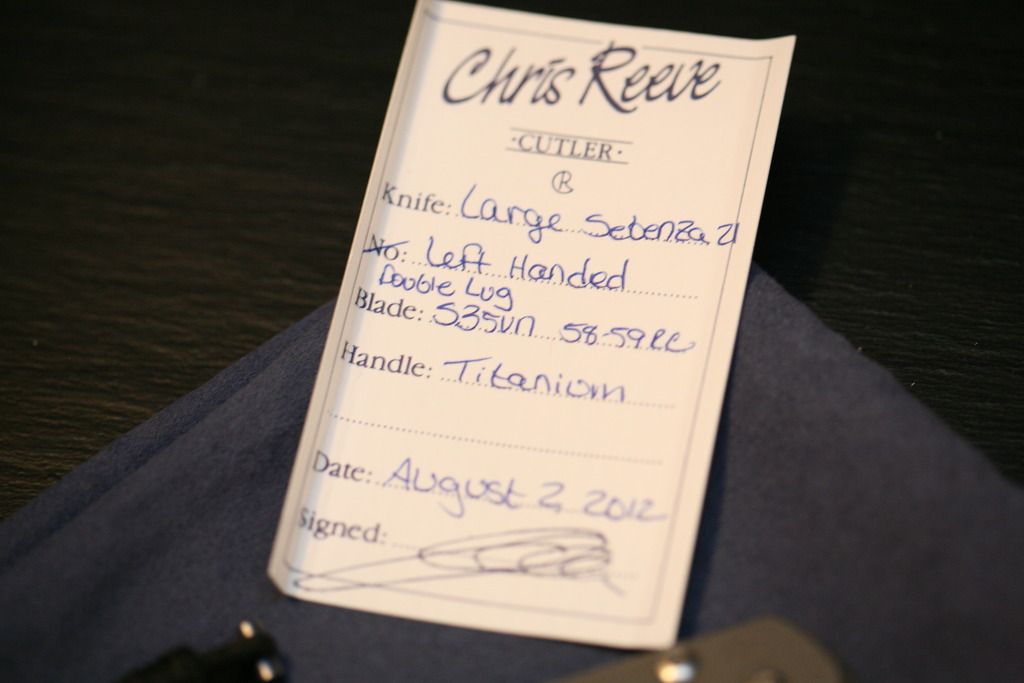 Chris Reeve
·CUTLER·
R
Knife: Large Sebenza 21
No: Left Handed
Double Lug
Blade: S35VN 58-59RC
Handle: Titanium
Date: August 2, 2012
Signed: